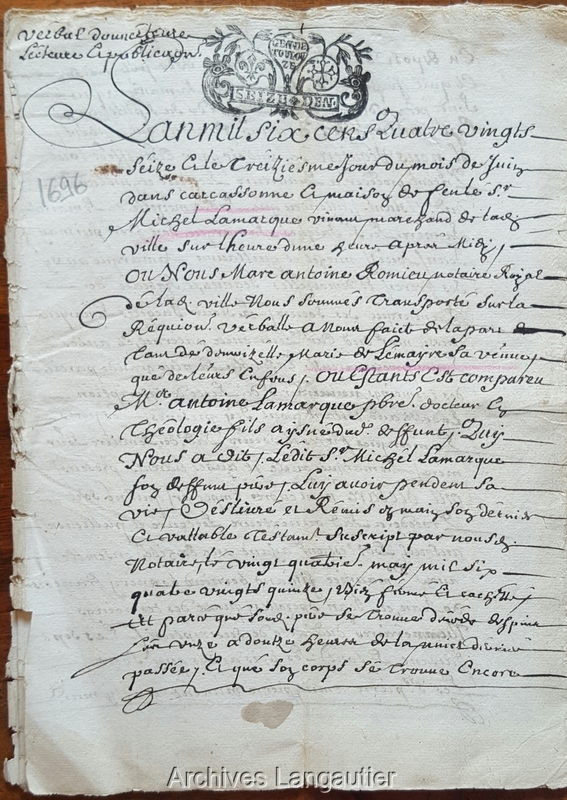 Verbal d'ouverture
Lecteure e publicaon
GEN DE
TOULOU
ZE
SEIZE DEN
1696
Lan mil six cens quatre vingts
seize e le treiziesme jour du mois de Juin
dans carcassonne e maison de feu le sr
Michel Lamarque vivant marchand de lad
ville sur lheure dune heure apres Midy
ou Nous Marc antoine Romieu notaire Royal
de lad ville Nous sommes transporté sur la
Réquion verballe a Nous faicte de la part
tant de demoizelle Marie de Lemayre sa veuve
que de leurs Enfons, ou Estants Est compareu
Mre antoine Lamarque pbre docteur en
Theologie fils aysné dud deffunt, Quy
Nous a dit, Ledit sr Michel Lamarque
son deffunt pere, Luy avoir pendent sa
vie, Deslivré et Remis en main son dernier
e vallable Testamt suscript par nousd.
Notaire, le vingt quatrie may mil six
quatre vingts quinze, Bien fermé e cachetté
Et parce que sond. pere se trouve decédé despuis
les unze a doutze heures de la nuit derniere
passée, e que son corps se trouve Encore
Archives Langautier